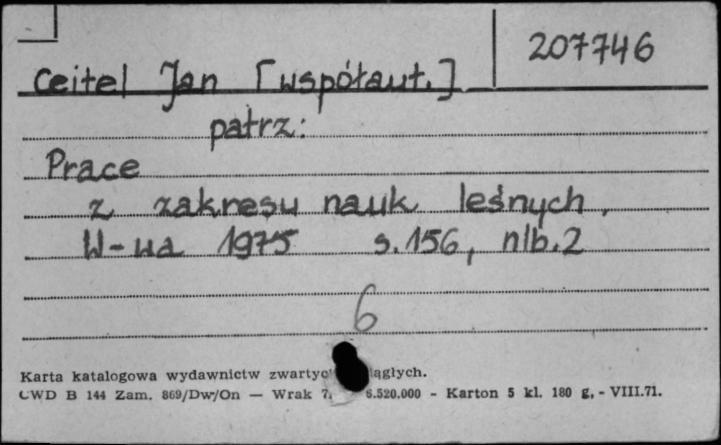 207746
Ceitel Jan [współaut.]
patrz:
Prace
z zakresu nauk leśnych.
W-wa 1975 s. 156, nlb. 2
6
Karta katalogowa wydawnictw
CWD B 144 Zam. 869/Dw/On — Wrak 6.520.000 - Karton 5 kl. 180 g. - VIII.71.